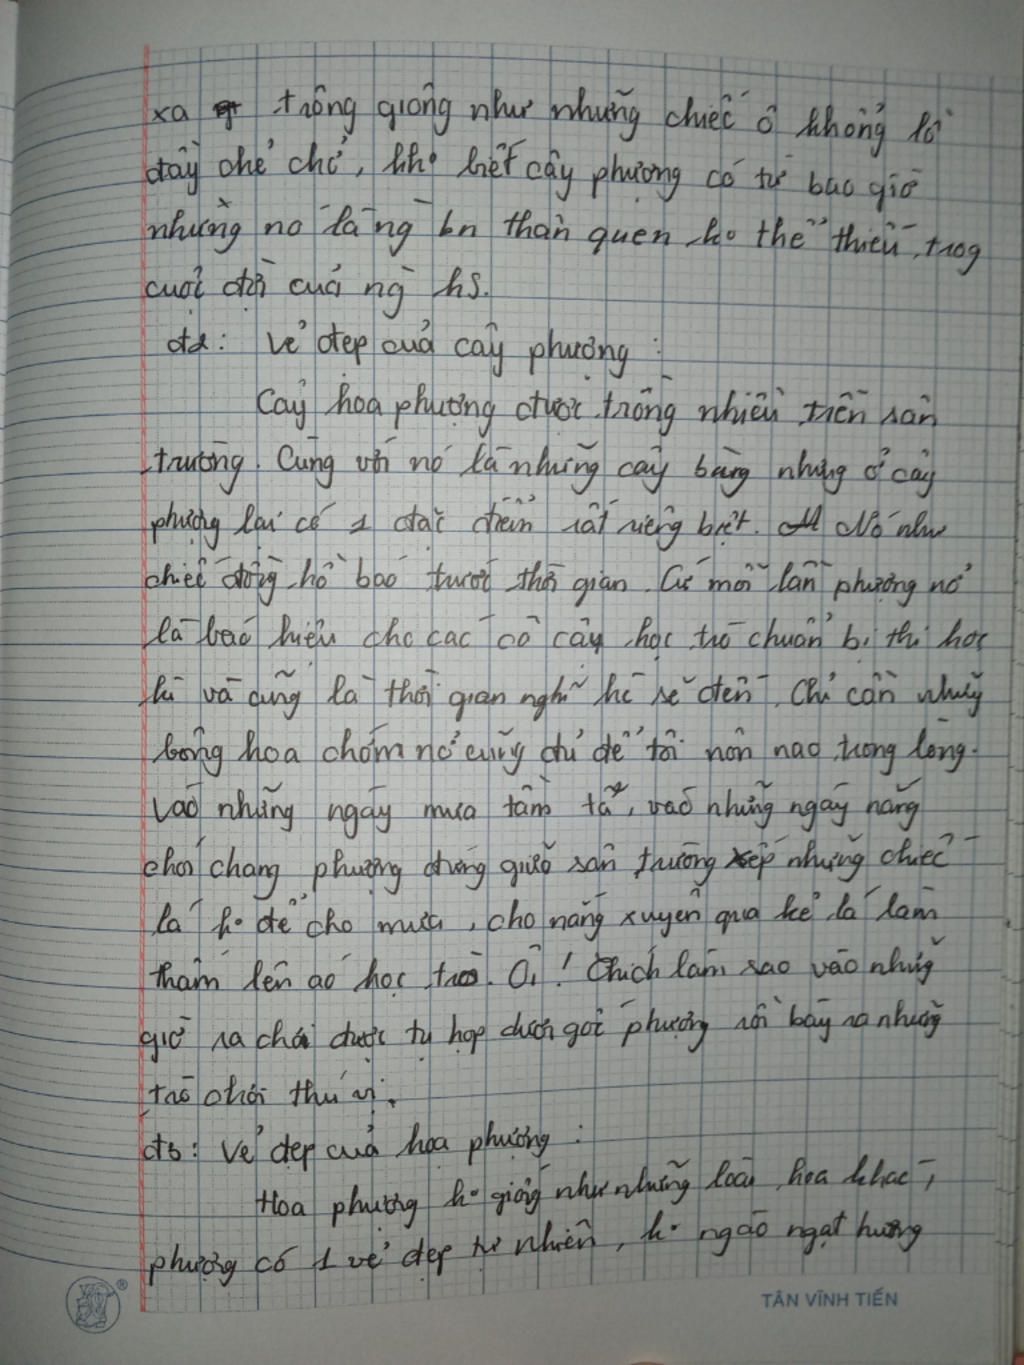 xa trông giống như những chiếc ô khổng lồ
đầy che chở, kho biết cây phượng có từ bao giờ
nhưng nó là ng bn thân quen ko thể thiếu trog
cuộc đời của ng hs.
đ2: Vẻ đẹp của cây phượng :
Cây hoa phượng được trồng nhiều trên sân
trường. Cùng với nó là những cây bàng nhưng ở cây
phượng lại có 1 đặc điểm rất riêng biệt. Nó như
chiếc đồng hồ báo trước thời gian. Cứ mỗi lần phượng nở
là báo hiệu cho các cô cậu học trò chuẩn bị thi học
kì và cũng là thời gian nghỉ hè sẽ đến. Chỉ cần những
bông hoa chớm nở cũng đủ để tôi nôn nao trong lòng.
Vào những ngày mưa tầm tã, vào những ngày nắng
chói chang phượng đứng giữa sân trường xếp những chiếc
lá ko để cho mưa, cho nắng xuyên qua kẽ lá làm
thấm lên áo học trò. Ôi! Thích làm sao vào những
giờ ra chơi được tụ họp dưới gốc phượng rồi bày ra những
trò chơi thú vị.
đ3: Vẻ đẹp của hoa phượng :
Hoa phượng ko giống như những loài hoa khác,
phượng có 1 vẻ đẹp tự nhiên, ko ngào ngạt hương
TÂN VĨNH TIẾN